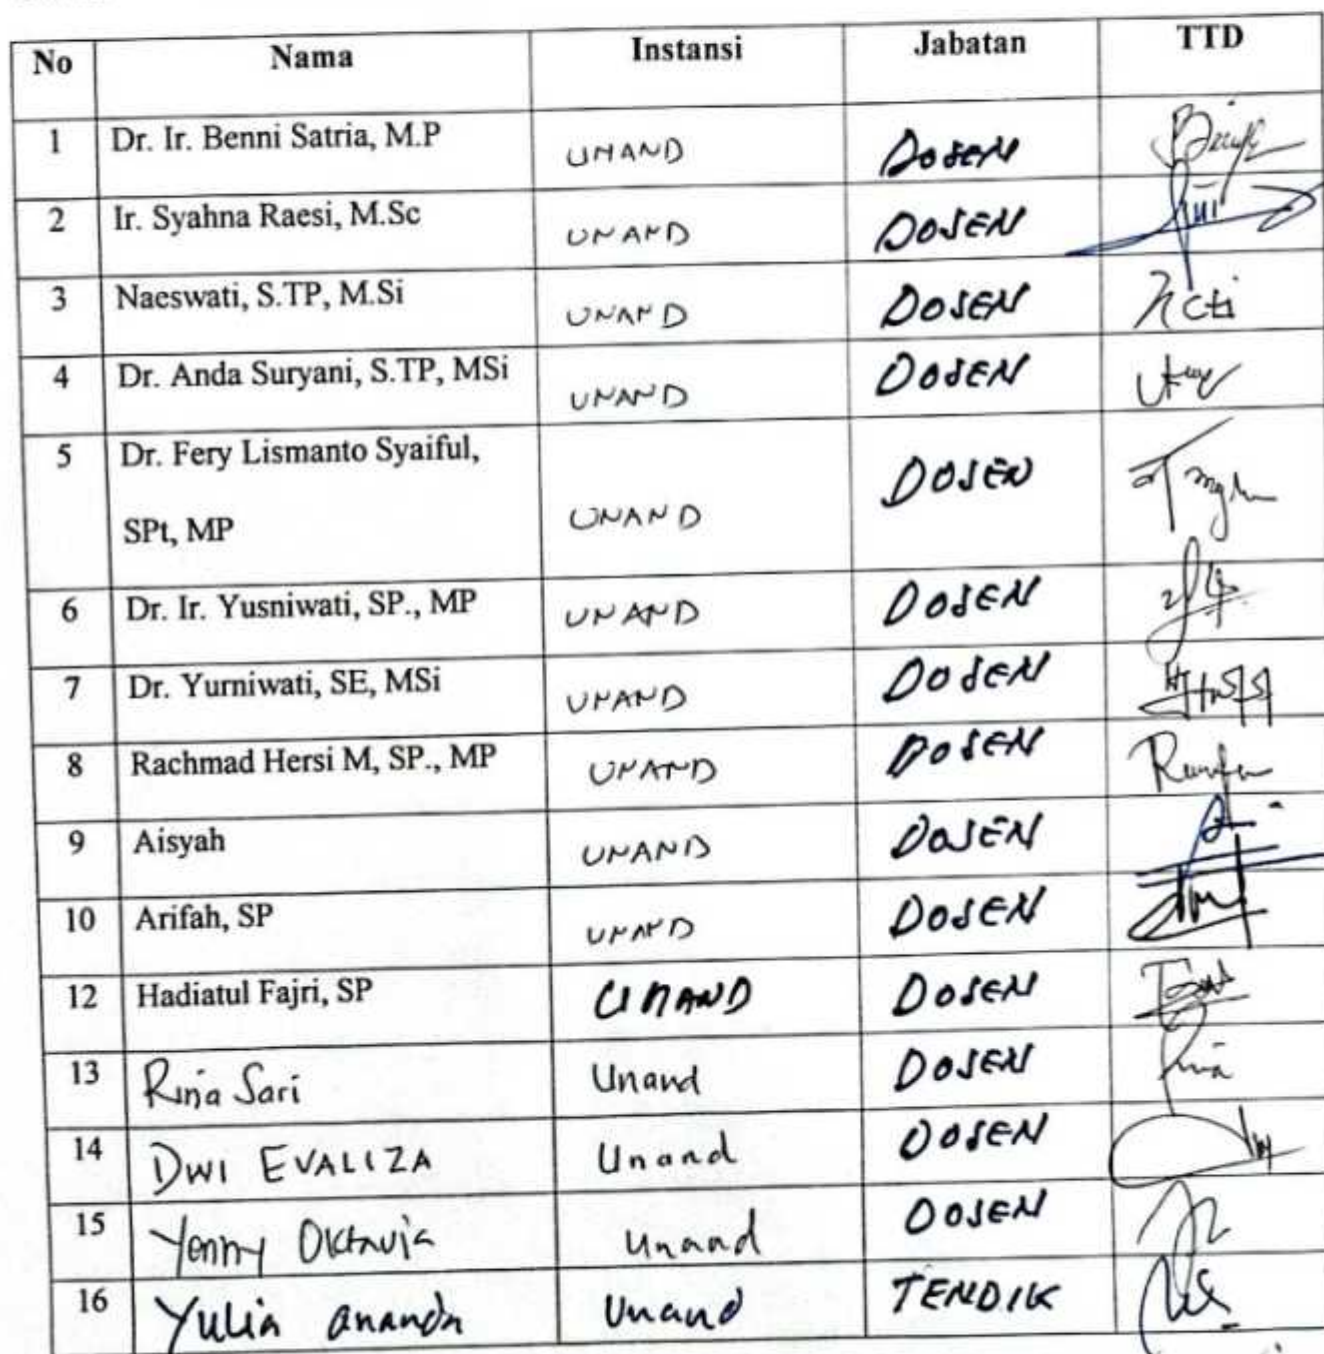 No Nama Instansi Jabatan TTD
1 Dr. Ir. Benni Satria, M.P UNAND DOSEN
2 Ir. Syahna Raesi, M.Sc UNAND DOSEN
3 Naeswati, S.TP, M.Si UNAND DOSEN
4 Dr. Anda Suryani, S.TP, MSi UNAND DOSEN
5 Dr. Fery Lismanto Syaiful,
SPt, MP UNAND DOSEN
6 Dr. Ir. Yusniwati, SP., MP UNAND DOSEN
7 Dr. Yurniwati, SE, MSi UNAND DOSEN
8 Rachmad Hersi M, SP., MP UNAND DOSEN
9 Aisyah UNAND DOSEN
10 Arifah, SP UNAND DOSEN
12 Hadiatul Fajri, SP UNAND DOSEN
13 Rina Sari Unand DOSEN
14 DWI EVALIZA Unand DOSEN
15 Yenny Oktavia Unand DOSEN
16 Yulia ananda Unand TENDIK